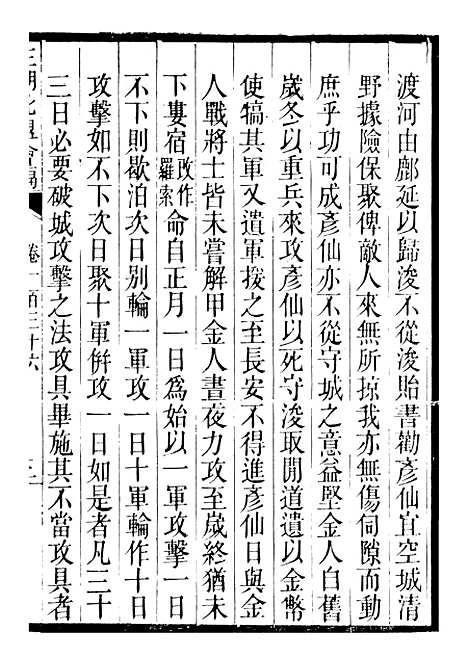 渡河由鄜延以歸浚不從浚貽書勸彥仙宜空城清
野據險保聚俾敵人來無所掠我亦無傷伺隙而動
庶乎功可成彥仙亦不從守城之意益堅金人自舊
歲冬以重兵來攻彥仙以死守浚取閒道遺以金幣
使犒其軍又遣軍援之至長安不得進彥仙日與金
人戰將士皆未嘗解甲金人晝夜力攻至歲終猶未
下婁宿改作羅索命自正月一日爲始以一軍攻擊一日
不下則歇泊次日別輪一軍攻一日十軍輪作十日
攻擊如不下次日聚十軍併攻一日如是者凡三十
三日必要破城攻擊之法攻具畢施其不當攻具者
三朝北盟會編
卷一百三十六
三